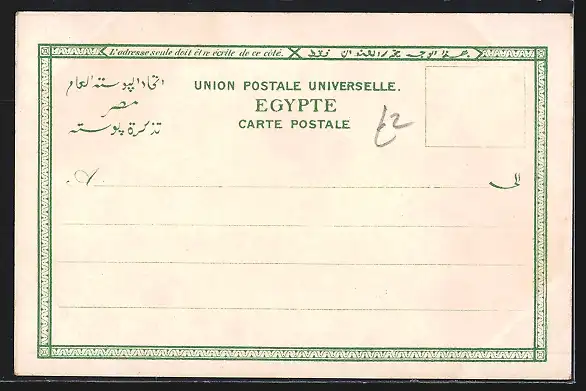 L'adresse seule doit être écrite de ce côté.
اتحاد البوسته العام
مصر
تذكرة بوسته
UNION POSTALE UNIVERSELLE.
EGYPTE
CARTE POSTALE
£2
A
الى